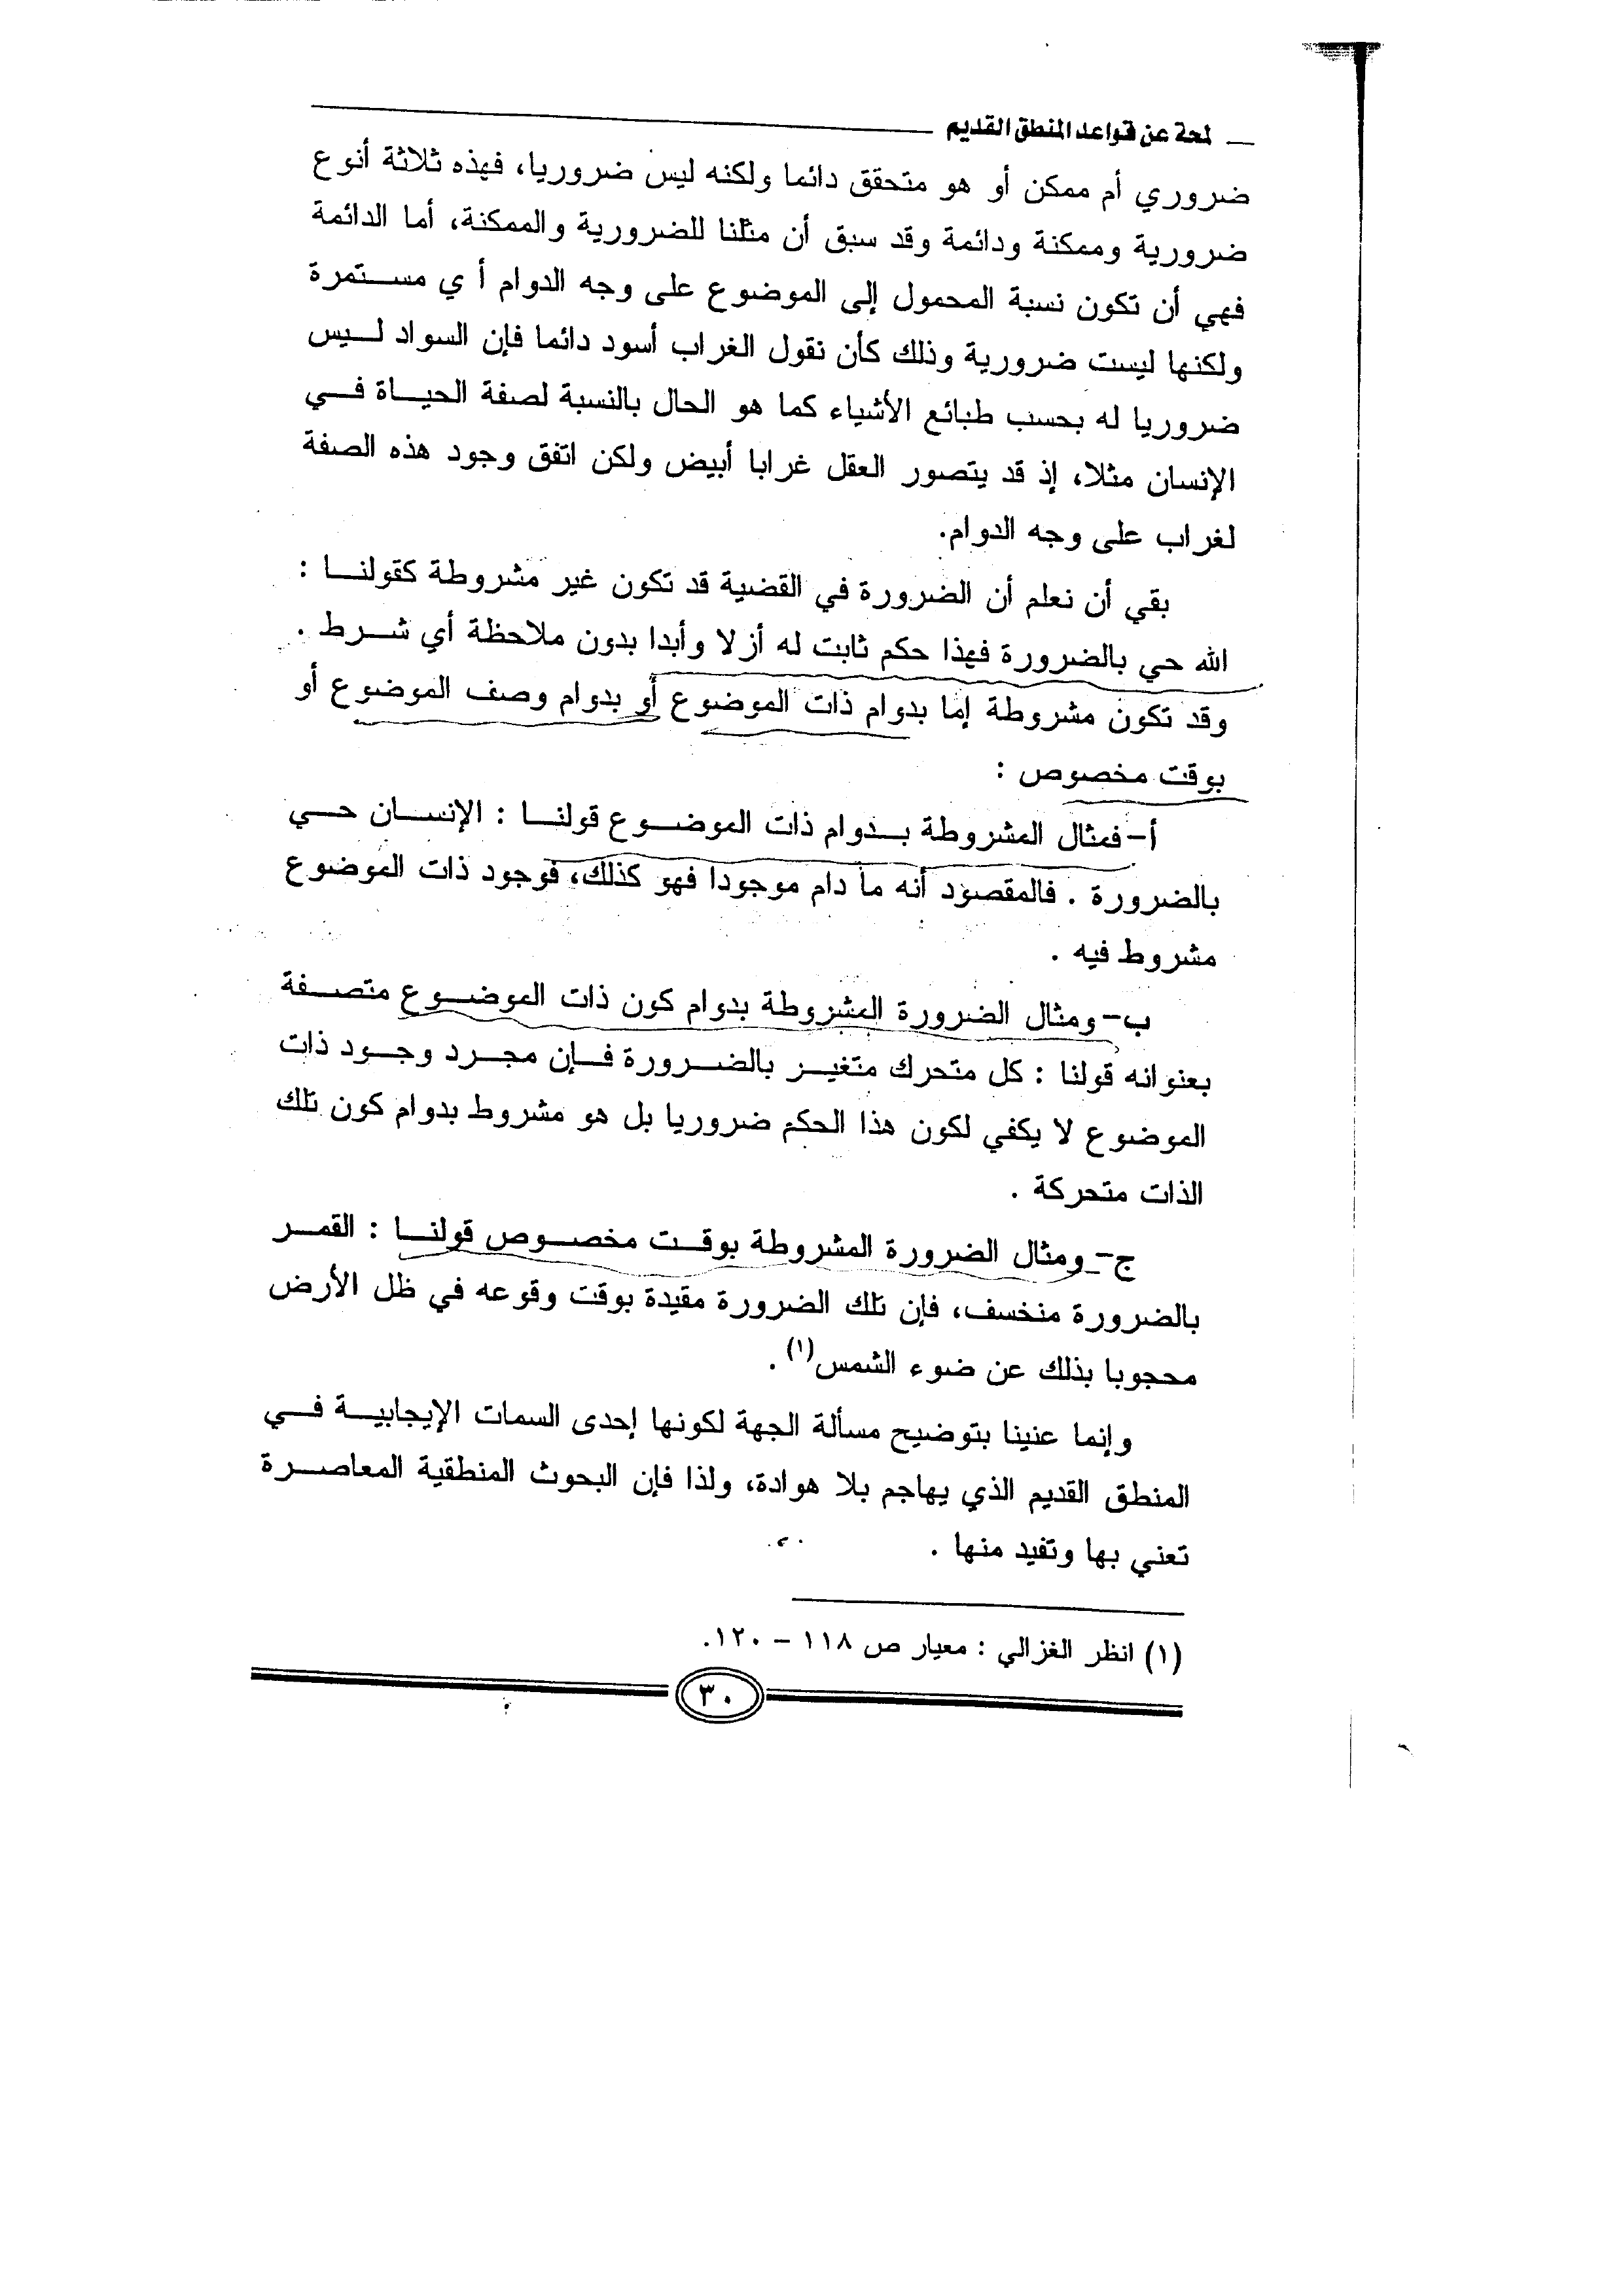 لمحة عن قواعد المنطق القديم
ضروري أم ممكن أو هو متحقق دائما ولكنه ليس ضروريا، فهذه ثلاثة أنوع
ضرورية وممكنة ودائمة وقد سبق أن مثلنا للضرورية والممكنة، أما الدائمة
فهي أن تكون نسبة المحمول إلى الموضوع على وجه الدوام أ ي مستمرة
ولكنها ليست ضرورية وذلك كأن نقول الغراب أسود دائما فإن السواد ليس
ضروريا له بحسب طبائع الأشياء كما هو الحال بالنسبة لصفة الحياة في
الإنسان مثلا، إذ قد يتصور العقل غرابا أبيض ولكن اتفق وجود هذه الصفة
لغراب على وجه الدوام.
بقي أن نعلم أن الضرورة في القضية قد تكون غير مشروطة كقولنا :
الله حي بالضرورة فهذا حكم ثابت له أزلا وأبدا بدون ملاحظة أي شرط .
وقد تكون مشروطة إما بدوام ذات الموضوع أو بدوام وصف الموضوع أو
بوقت مخصوص :
أ- فمثال المشروطة بدوام ذات الموضوع قولنا : الإنسان حي
بالضرورة . فالمقصود أنه ما دام موجودا فهو كذلك، فوجود ذات الموضوع
مشروط فيه .
ب- ومثال الضرورة المشروطة بدوام كون ذات الموضوع متصفة
بعنوانه قولنا : كل متحرك متغير بالضرورة فإن مجرد وجود ذات
الموضوع لا يكفي لكون هذا الحكم ضروريا بل هو مشروط بدوام كون تلك
الذات متحركة .
ج- ومثال الضرورة المشروطة بوقت مخصوص قولنا : القمر
بالضرورة منخسف، فإن تلك الضرورة مقيدة بوقت وقوعه في ظل الأرض
محجوبا بذلك عن ضوء الشمس(١) .
وإنما عنينا بتوضيح مسألة الجهة لكونها إحدى السمات الإيجابية في
المنطق القديم الذي يهاجم بلا هوادة، ولذا فإن البحوث المنطقية المعاصرة
تعني بها وتفيد منها .
(١) انظر الغزالي : معيار ص ١١٨ – ١٢٠.
٣٠